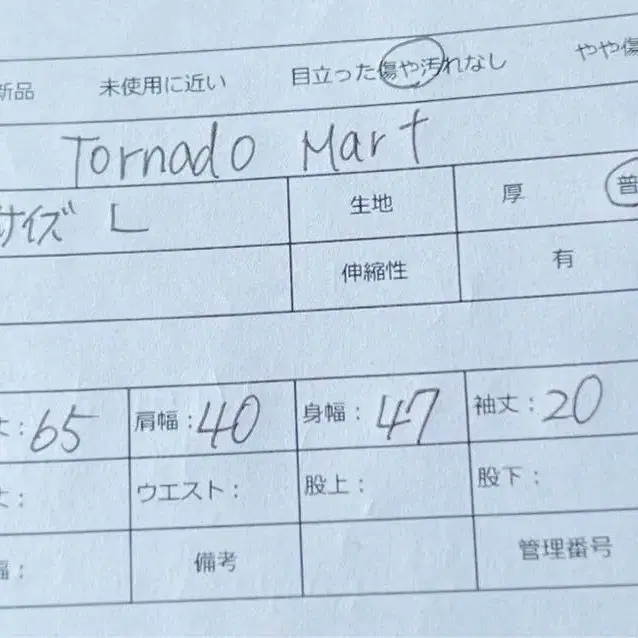 新品 未使用に近い 目立った傷や汚れなし やや傷
Tornado Mart
サイズ L 生地 厚 普
伸縮性 有
丈：65 肩幅：40 身幅：47 袖丈：20
丈： ウエスト： 股上： 股下：
幅： 備考 管理番号